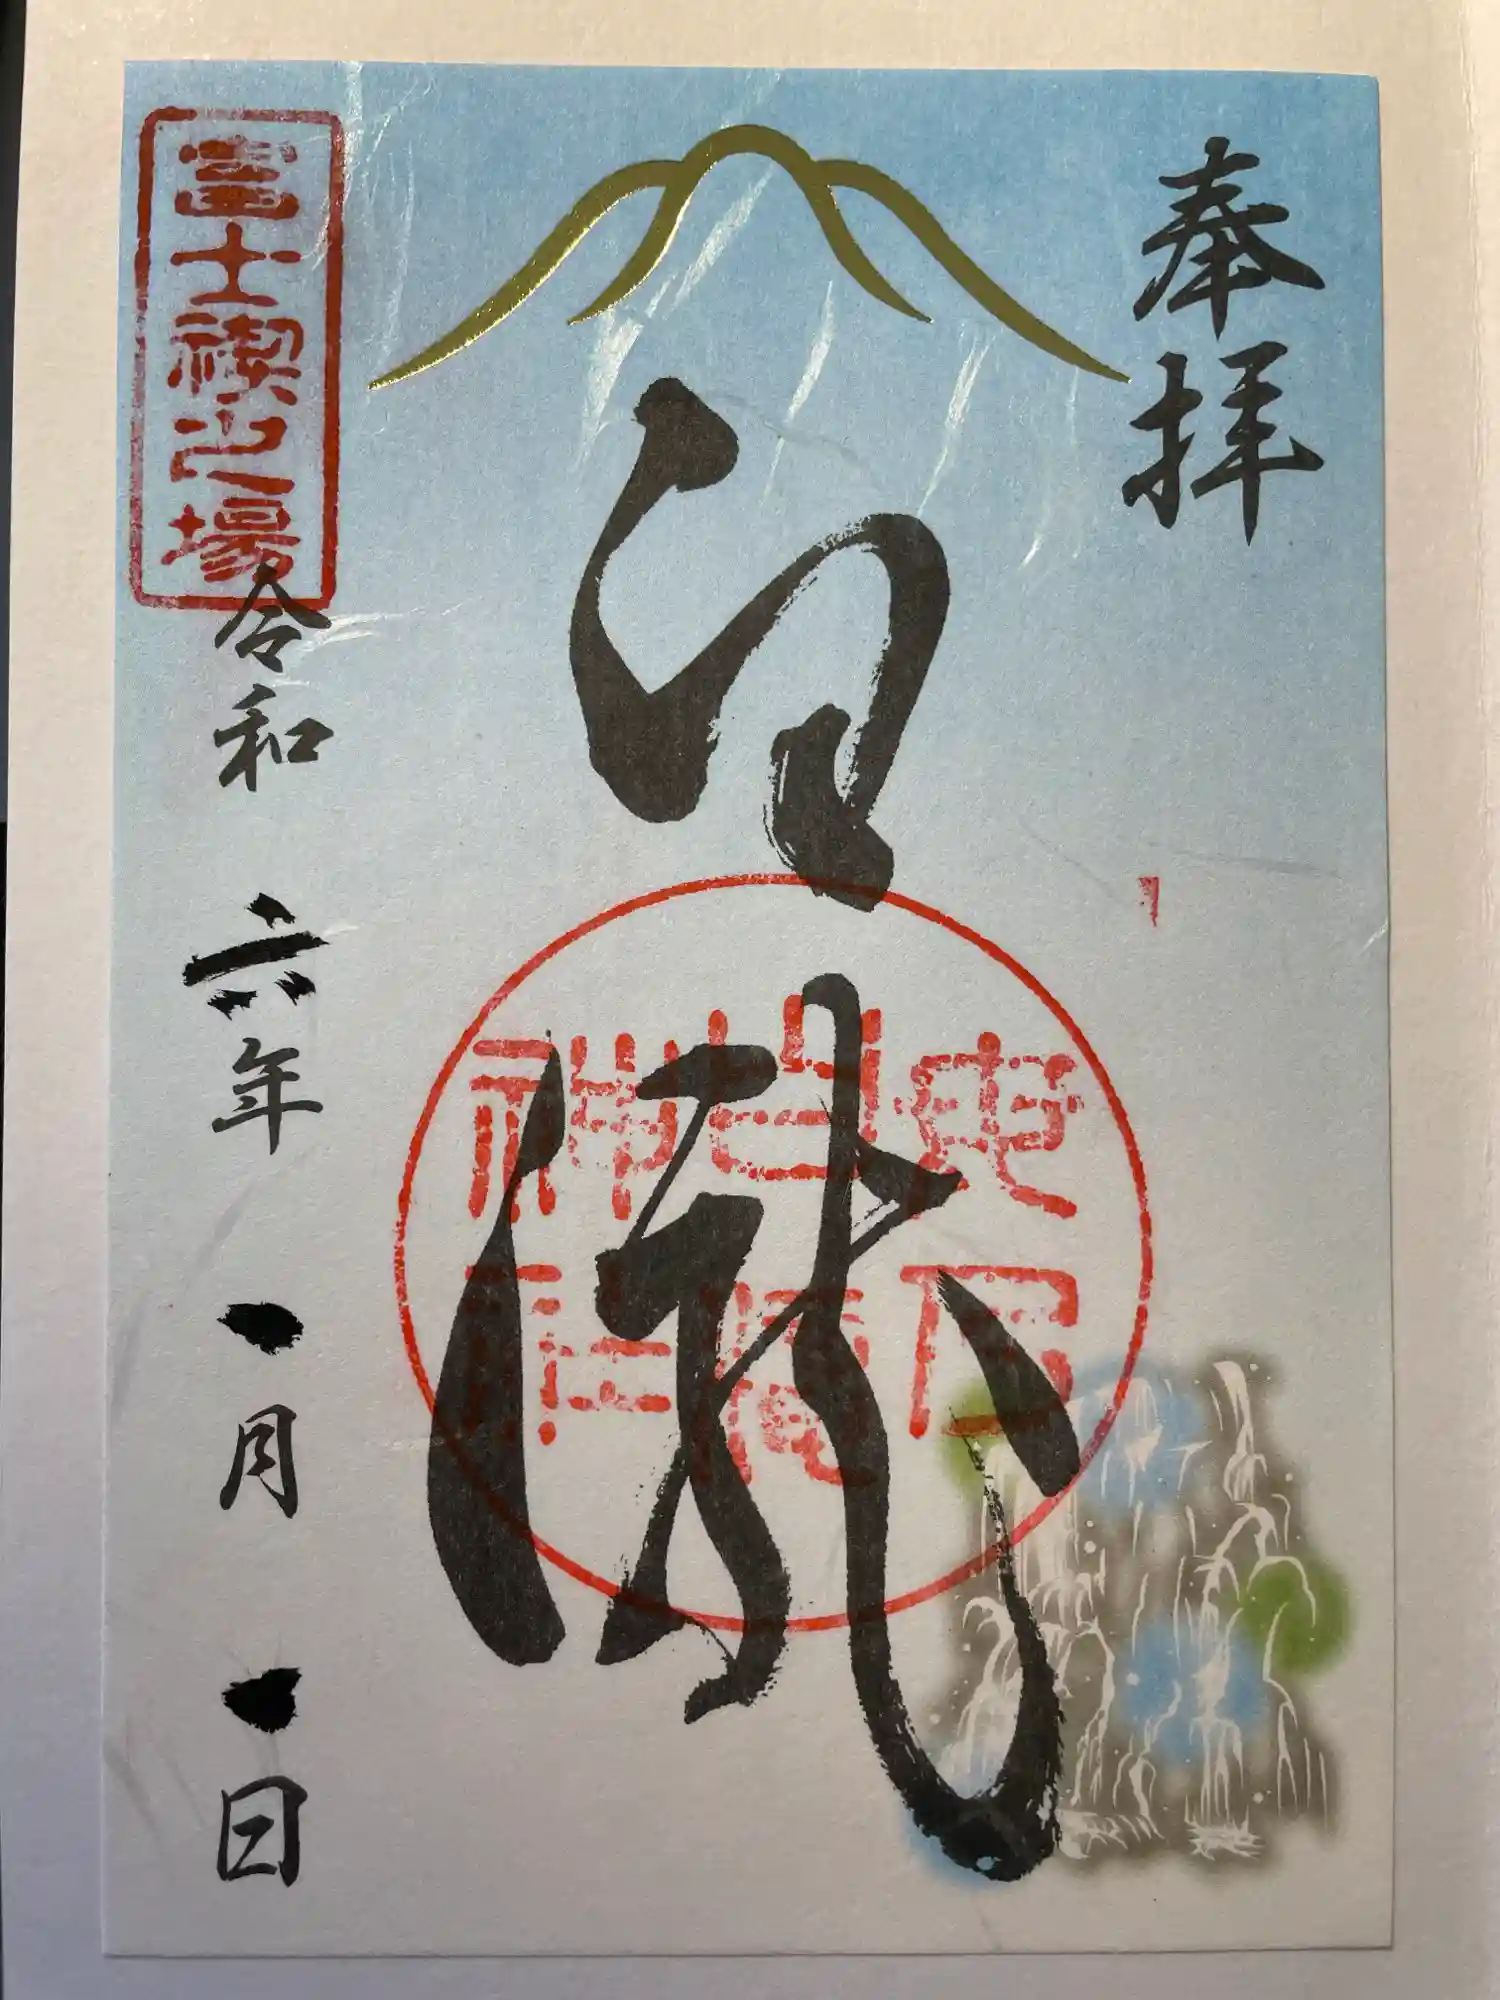 奉拝
白瀧
富士禊之場
令和 六年 一月 一日